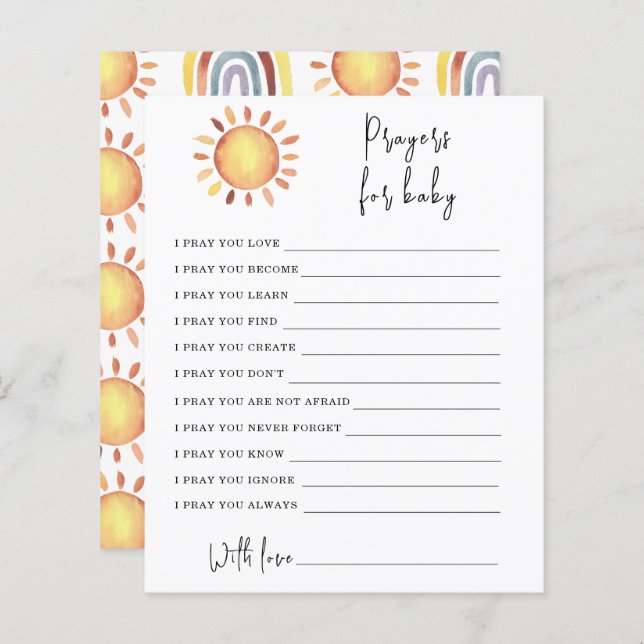 Prayers
for baby
I PRAY YOU LOVE
I PRAY YOU BECOME
I PRAY YOU LEARN
I PRAY YOU FIND
I PRAY YOU CREATE
I PRAY YOU DON'T
I PRAY YOU ARE NOT AFRAID
I PRAY YOU NEVER FORGET
I PRAY YOU KNOW
I PRAY YOU IGNORE
I PRAY YOU ALWAYS
With love